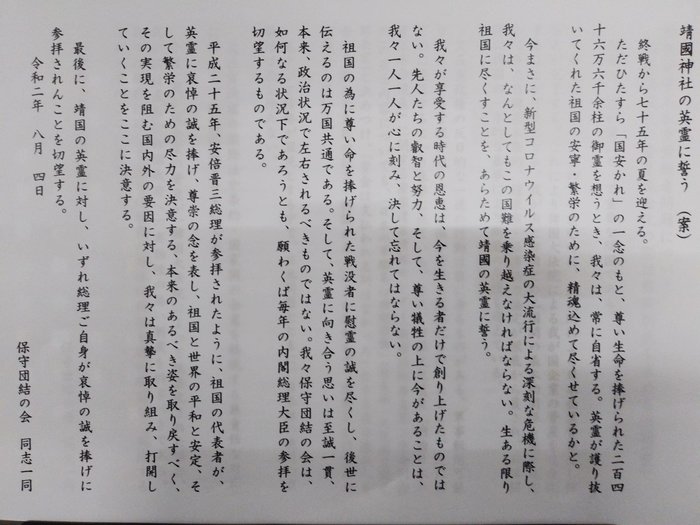 靖國神社の英霊に誓う （案）
終戦から七十五年の夏を迎える。
ただひたすら「国安かれ」の一念のもと、尊い生命を捧げられた二百四
十六万六千余柱の御霊を想うとき、我々は、常に自省する。英霊が護り抜
いてくれた祖国の安寧・繁栄のために、精魂込めて尽くせているかと。
今まさに、新型コロナウイルス感染症の大流行による深刻な危機に際し、
我々は、なんとしてもこの国難を乗り越えなければならない。生ある限り
祖国に尽くすことを、あらためて靖國の英霊に誓う。
我々が享受する時代の恩恵は、今を生きる者だけで創り上げたものでは
ない。先人たちの叡智と努力、そして、尊い犠牲の上に今があることは、
我々一人一人が心に刻み、決して忘れてはならない。
祖国の為に尊い命を捧げられた戦没者に慰霊の誠を尽くし、後世に
伝えるのは万国共通である。そして、英霊に向き合う思いは至誠一貫、
本来、政治状況で左右されるべきものではない。我々保守団結の会は、
如何なる状況下であろうとも、願わくば毎年の内閣総理大臣の参拝を
切望するものである。
平成二十五年、安倍晋三総理が参拝されたように、祖国の代表者が、
英霊に哀悼の誠を捧げ、尊崇の念を表し、祖国と世界の平和と安定、そ
して繁栄のための尽力を決意する、本来のあるべき姿を取り戻すべく、
その実現を阻む国内外の要因に対し、我々は真摯に取り組み、打開し
ていくことをここに決意する。
最後に、靖国の英霊に対し、いずれ総理ご自身が哀悼の誠を捧げに
参拝されんことを切望する。
令和二年 八月 四日
保守団結の会 同志一同